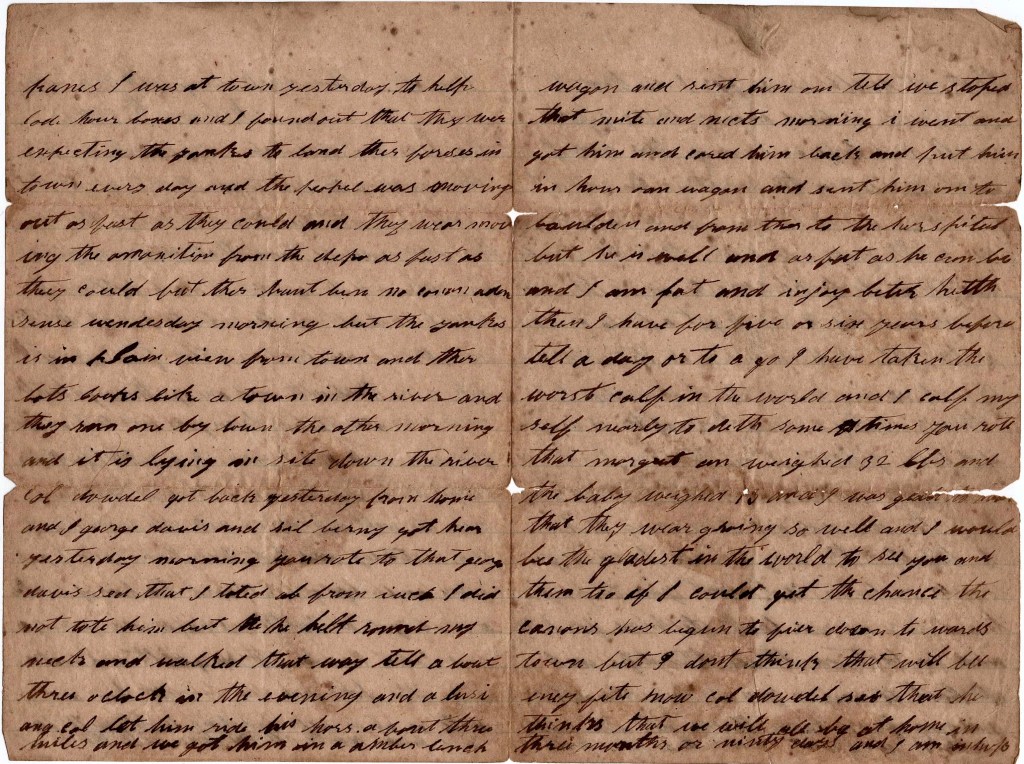 I was at town yesterday to help
lode hour boxes and I found out that they wer
expecting the yankes to land ther forses in
town every day and the peopel was moving
out as fast as they could and they wear mov
ing the amonition from the depo as fast as
they could but ther haint ben no
sense wendesday morning but the yankes
is in plain view from town and ther
bots looks like a town in the river and
they run one by town the other morning
and it is lying in site down the river
Col dowdel got back yesterday from home
and I george davis and berry got hear
yesterday morning you rote to that georg
davis sed that I toted ab from I did
not tote him but he helt round my
neck and walked that way tell a bout
three oclock in the evening and a lusi
ana col let him ride his hors a bout three
miles and we got him in a amber lench
wagon and sent him on tell we stoped
that nite and nects morning i went and
got him and cared him back and put him
in hour oan wagon and sent him on to
and from ther to the horspital
but he is well and as fat as he can be
and I am fat and injoy beter helth
then I have for five or six years before
tell a day or to a go I have taken the
worst calf in the world and I calf my
self nearly to deth some times you rote
that morget an weighed 32 lbs and
the baby weighed 13 and I was
that they wear groing so well and I would
bee the gladest in the world to see you and
them too if I could get the chance the
canons has begun to fier down to wards
town but I dont think that will bee
eney fite now col dowdel ses that he
thinks that we will all bg at home in
three months or ninty days and I am in hops